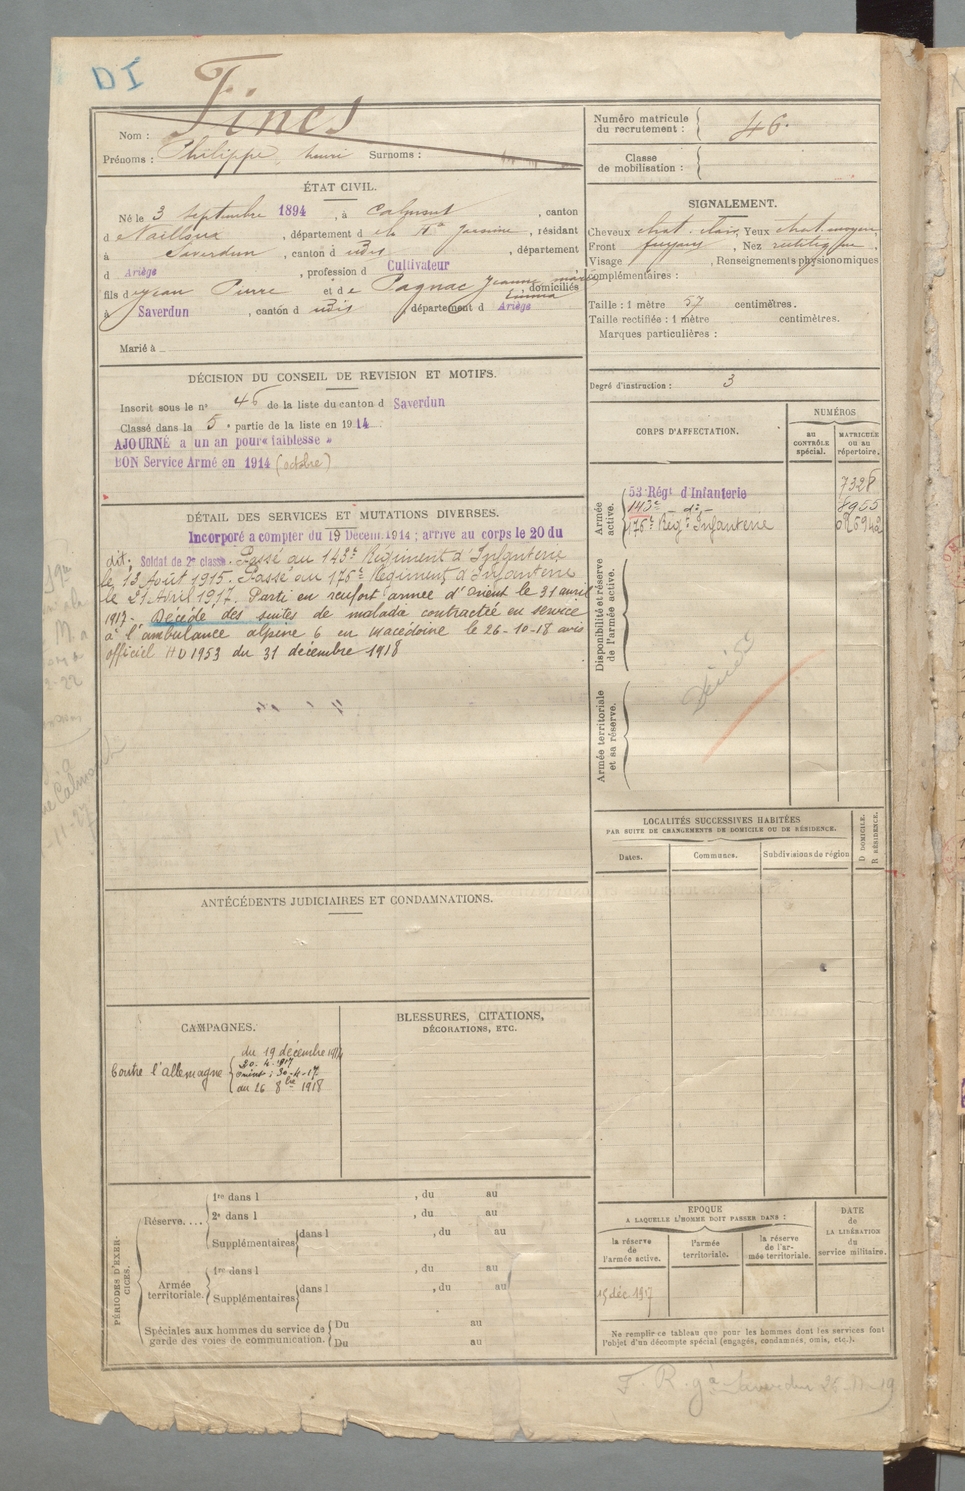 DI
Fines
Nom :
Prénoms : Philippe, henri Surnoms :
ÉTAT CIVIL.
Né le 3 septembre 1894, à Calmont, canton
d Nailloux, département d e la Hte Garonne, résidant
à Saverdun, canton d udis, département
d Ariège, profession d Cultivateur
fils de Jean Pierre et de Pagnac Jeanne marie Emma, domiciliés
à Saverdun, canton d udis, département d Ariège
Marié à
DÉCISION DU CONSEIL DE REVISION ET MOTIFS.
Inscrit sous le n° 46 de la liste du canton d Saverdun
Classé dans la 5e partie de la liste en 1914
AJOURNÉ a un an pour « faiblesse »
BON Service Armé en 1914 (octobre)
DÉTAIL DES SERVICES ET MUTATIONS DIVERSES.
Incorporé a compter du 19 Décem. 1914 ; arrive au corps le 20 du
dit. Soldat de 2e classe. Passé au 143e Régiment d'Infanterie
le 13 Août 1915. Passé au 176e Régiment d'Infanterie
le 21 Avril 1917. Parti en renfort armée d'orient le 31 avril
1917. Décédé des suites de maladie contractée en service
à l'ambulance alpine 6 en macédoine le 26-10-18 avis
officiel HD 1953 du 31 décembre 1918
ANTÉCÉDENTS JUDICIAIRES ET CONDAMNATIONS.
CAMPAGNES.
Contre l'allemagne
du 19 décembre 1914
20.4.1917
orient : 30-4-17
au 26 8bre 1918
BLESSURES, CITATIONS,
DÉCORATIONS, ETC.
PÉRIODES D'EXERCICES.
Réserve....
1re dans l , du au
2e dans l , du au
Supplémentaires dans l , du au
Armée territoriale.
1re dans l , du au
Supplémentaires dans l , du au
Spéciales aux hommes du service de
garde des voies de communication.
Du au
Du au
Numéro matricule
du recrutement : 46.
Classe
de mobilisation :
SIGNALEMENT.
Cheveux chat. clair, Yeux chat. moyen,
Front fuyant, Nez rectiligne,
Visage , Renseignements physionomiques
complémentaires :
Taille : 1 mètre 57 centimètres.
Taille rectifiée : 1 mètre centimètres.
Marques particulières :
Degré d'instruction : 3
CORPS D'AFFECTATION.
NUMÉROS
au
CONTRÔLE
spécial.
MATRICULE
ou au
répertoire.
Armée
active.
53e Régt d'Infanterie
143e - do -
8955
176e Régt Infanterie
Disponibilité et réserve
de l'armée active.
Décédé
Armée territoriale
et sa réserve.
LOCALITÉS SUCCESSIVES HABITÉES
PAR SUITE DE CHANGEMENTS DE DOMICILE OU DE RÉSIDENCE.
Dates.
Communes.
Subdivisions de région
D DOMICILE.
R RÉSIDENCE.
EPOQUE
A LAQUELLE L'HOMME DOIT PASSER DANS :
la réserve
de
l'armée active.
l'armée
territoriale.
la réserve
de l'ar-
mée territoriale.
DATE
de
LA LIBÉRATION
du
service militaire.
15 déc. 1917
Ne remplir ce tableau que pour les hommes dont les services font
l'objet d'un décompte spécial (engagés, condamnés, omis, etc.).